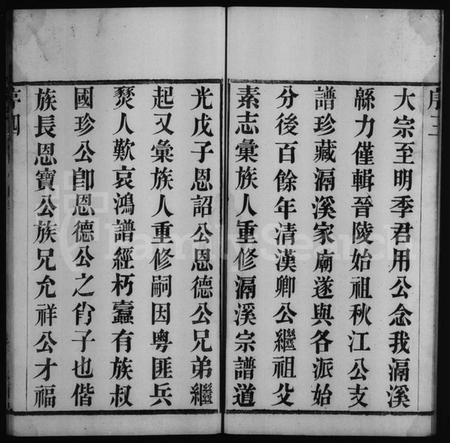 序三
大宗至明季君用公念我滆溪
緜力僅輯晉陵始祖秋江公支
譜珍藏滆溪家廟遂與各派始
分後百餘年清漢卿公繼祖父
素志彙族人重修滆溪宗譜道
光戊子恩詔公恩德公兄弟繼
起又彙族人重修嗣因粵匪兵
燹人歎哀鴻譜經朽蠹有族叔
國珍公卽恩德公之肖子也偕
族長恩寶公族兄允祥公才福
序四
FamilySearch